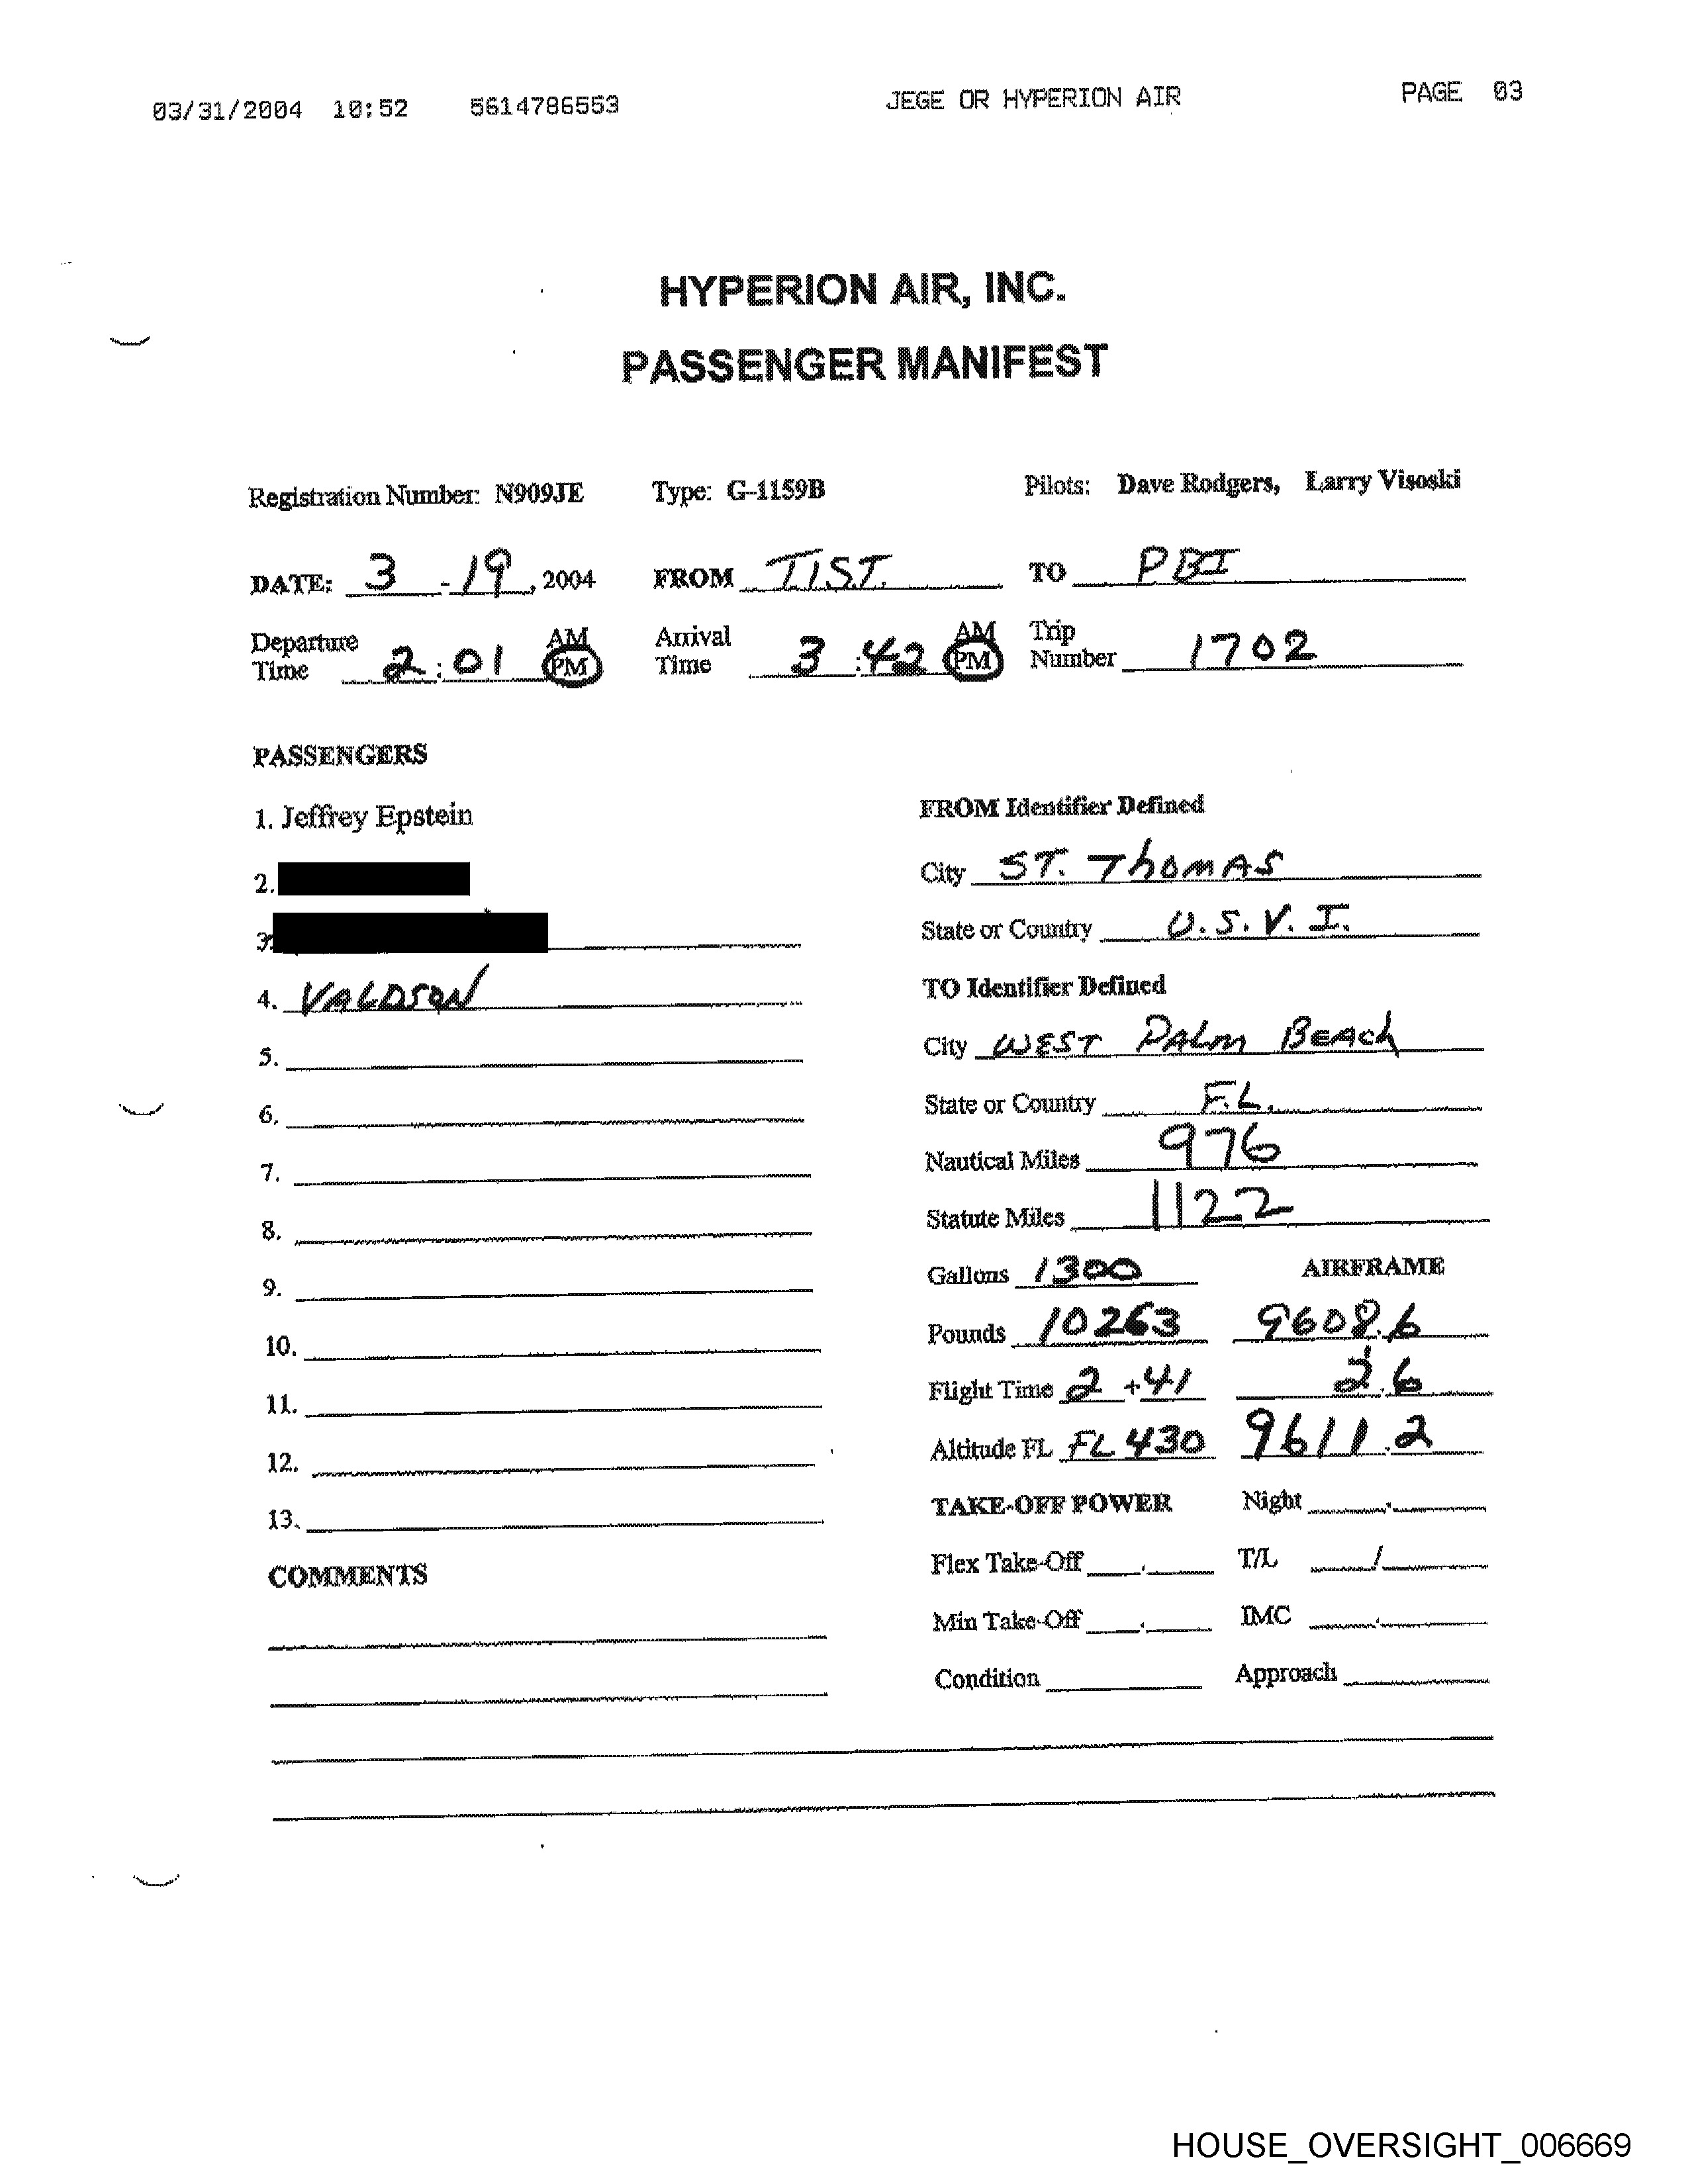 03/31/2004 10:52 5614786553 JEGE OR HYPERION AIR PAGE 03
HYPERION AIR, INC.
PASSENGER MANIFEST
Registration Number: N909JE Type: G-1159B Pilots: Dave Rodgers, Larry Visoski
DATE: 3 - 19, 2004 FROM TIST. TO PBI
Departure Time 2:01 AM PM Arrival Time 3:42 AM PM Trip Number 1702
PASSENGERS
1. Jeffrey Epstein
2.
3.
4. VALDSON
5.
6.
7.
8.
9.
10.
11.
12.
13.
COMMENTS
FROM Identifier Defined
City ST. ThOMAS
State or Country U.S.V.I.
TO Identifier Defined
City WEST PALM BEACh
State or Country F.L.
Nautical Miles 976
Statute Miles 1122
Gallons 1300 AIRFRAME
Pounds 10263 9608.6
Flight Time 2 +41 2.6
Altitude FL FL 430 9611.2
TAKE-OFF POWER Night
Flex Take-Off T/L /
Min Take-Off IMC
Condition Approach
HOUSE_OVERSIGHT_006669